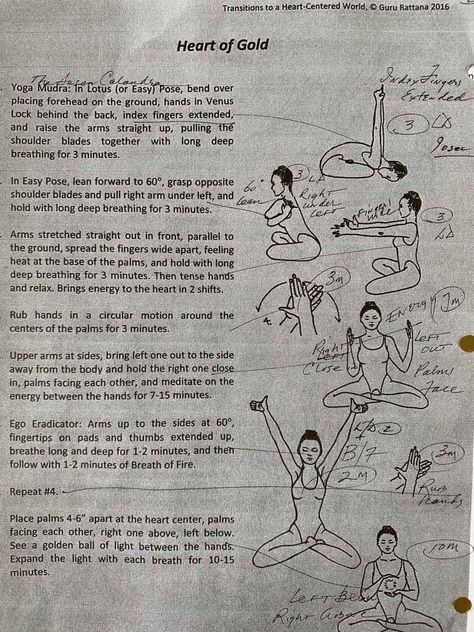 Transitions to a Heart-Centered World, © Guru Rattana 2016
Heart of Gold
Yoga Mudra: In Lotus (or Easy) Pose, bend over
placing forehead on the ground, hands in Venus
Lock behind the back, index fingers extended,
and raise the arms straight up, pulling the
shoulder blades together with long deep
breathing for 3 minutes.
Index Fingers
Extended
3 LD
90sec
In Easy Pose, lean forward to 60°, grasp opposite
shoulder blades and pull right arm under left, and
hold with long deep breathing for 3 minutes.
60°
lean
3 LD
Right
Under
Left
Arms stretched straight out in front, parallel to
the ground, spread the fingers wide apart, feeling
heat at the base of the palms, and hold with long
deep breathing for 3 minutes. Then tense hands
and relax. Brings energy to the heart in 2 shifts.
3
LD
Rub hands in a circular motion around the
centers of the palms for 3 minutes.
3m
4.
Upper arms at sides, bring left one out to the side
away from the body and hold the right one close
in, palms facing each other, and meditate on the
energy between the hands for 7-15 minutes.
Energy
7m
Right
Close
Left
Out
Palms
Face
Ego Eradicator: Arms up to the sides at 60°,
fingertips on pads and thumbs extended up,
breathe long and deep for 1-2 minutes, and then
follow with 1-2 minutes of Breath of Fire.
LD 2
+
B/F
2 M
Repeat #4.
3m
Rub
Hands
Place palms 4-6” apart at the heart center, palms
facing each other, right one above, left below.
See a golden ball of light between the hands.
Expand the light with each breath for 10-15
minutes.
10m
Left Below
Right Above